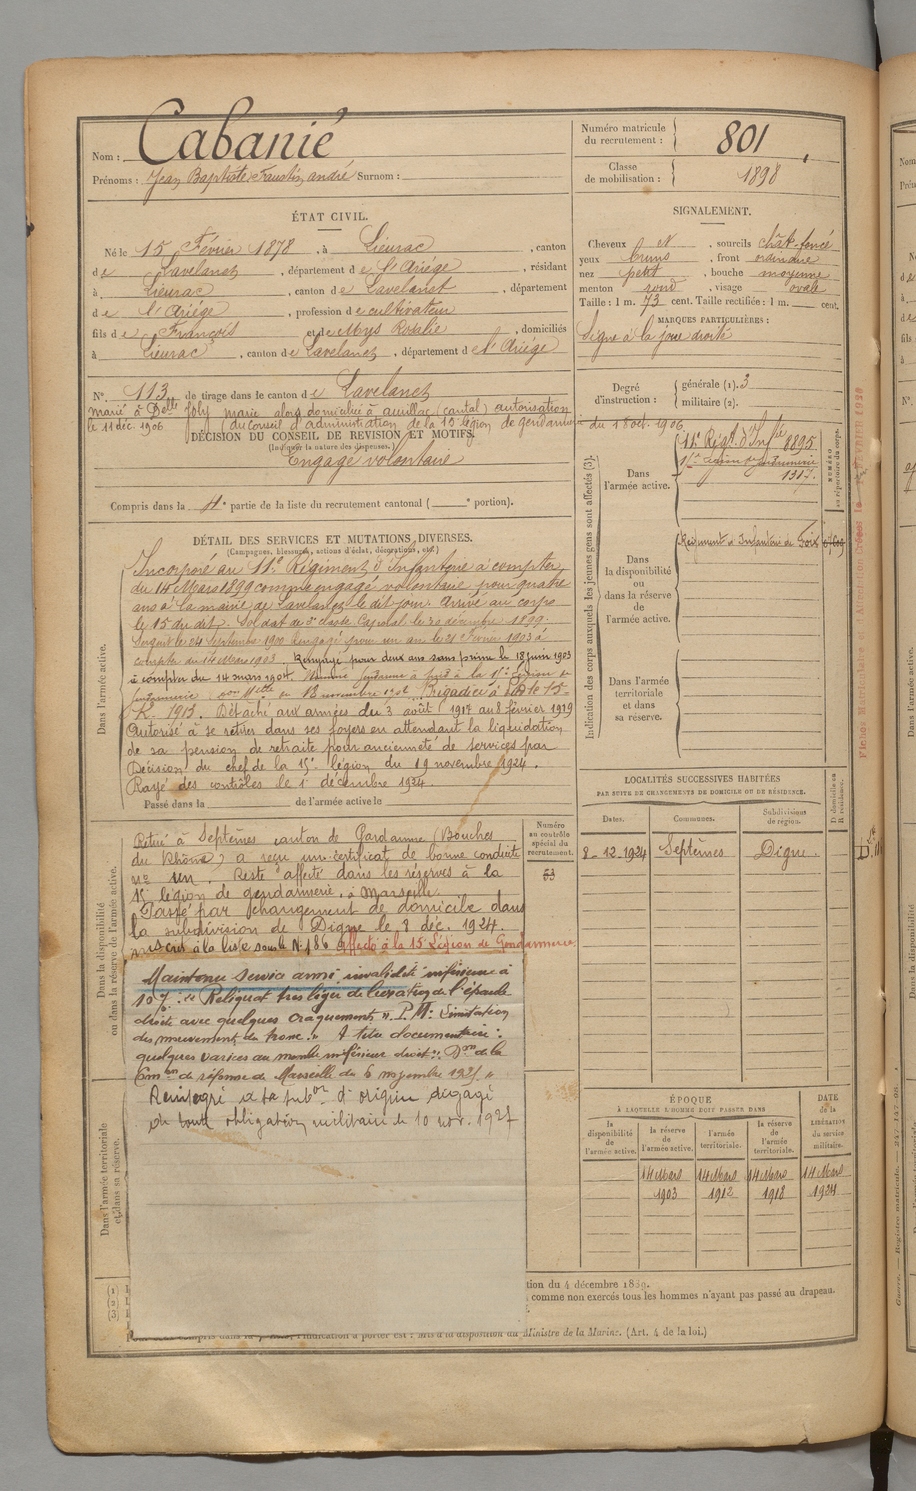 Nom : Cabanié
Prénoms : Jean Baptiste Faustin, andré Surnom :
Numéro matricule du recrutement : 801
Classe de mobilisation : 1898
ÉTAT CIVIL.
Né le 15 Février 1878, à Lieurac, canton
de Lavelanet, département de l'Ariége, résidant
à Lieurac, canton de Lavelanet, département
de l'Ariége, profession de cultivateur
fils de François et de Mys Rosalie, domiciliés
à Lieurac, canton de Lavelanet, département de l'Ariége
SIGNALEMENT.
Cheveux et, sourcils chât-foncé
yeux bruns, front ordinaire
nez petit, bouche moyenne
menton rond, visage ovale
Taille : 1 m. 73 cent. Taille rectifiée : 1 m. cent.
MARQUES PARTICULIÈRES :
Signe à la joue droite
N°. 113 de tirage dans le canton de Lavelanet
marié à Delle Joly marie alors domiciliée à aurillac (cantal) autorisation
le 11 déc. 1906 (du Conseil d'administration de la 15e légion de gendarmerie du 18 oct. 1906
DÉCISION DU CONSEIL DE REVISION ET MOTIFS.
(Indiquer la nature des dispenses.)
Engagé volontaire
Compris dans la 4e partie de la liste du recrutement cantonal ( e portion).
Degré d'instruction : générale (1). 3
militaire (2).
DÉTAIL DES SERVICES ET MUTATIONS DIVERSES.
(Campagnes, blessures, actions d'éclat, décorations, etc.)
Dans l'armée active.
Incorporé au 11e Régiment d'Infanterie à compter
du 14 Mars 1899 comme engagé volontaire pour quatre
ans à la mairie de Lavelanet le dit jour. Arrivé au corps
le 15 du dit. Soldat de 2e classe Caporal le 30 décembre 1899.
Sergent le 24 Septembre 1900. Rengagé pour un an le 21 février 1903 à
compter du 14 Mars 1903. Rengagé pour deux ans sans prime le 18 juin 1903
à compter du 14 mars 1904. Nommé gendarme à pied à la 15e Légion de
gendarmerie 18 novembre Brigadier à pied le 15
1913. Détaché aux armées du 3 août 1917 au 8 février 1919
Autorisé à se retirer dans ses foyers en attendant la liquidation
de sa pension de retraite pour ancienneté de services par
Décision du chef de la 15e légion du 19 novembre 1924.
Rayé des contrôles le 1er décembre 1924.
Passé dans la de l'armée active le
Dans la disponibilité ou dans la réserve de l'armée active.
Retiré à Septèmes canton de Gardanne (Bouches
du Rhône) a reçu un certificat de bonne conduite
n° un. Reste affecté dans les réserves à la
15e légion de gendarmerie, à Marseille.
Passé par changement de domicile dans
la subdivision de Digne le 8 déc. 1924.
inscrit à la liste sous le N° 186 affecté à la 15e Légion de Gendarmerie.
Maintenu service armé invalidité inférieure à
10 %. "Reliquat très léger de luxation de l'épaule
droite avec quelques craquements". P.M : Limitation
des mouvements du tronc." A titre documentaire :
quelques varices au membre inférieur droit". Don de la
Com. on de réforme de Marseille du 6 novembre 1925."
Réintégré à sa subon d'origine dégagé
de toute obligation militaire le 10 nov. 1927
Numéro au contrôle spécial du recrutement.
53
Dans l'armée territoriale et dans sa réserve.
Indication des corps auxquels les jeunes gens sont affectés (3).
NUMÉRO au répertoire du corps.
Dans l'armée active.
11e Régt. d'Infie 8895
15e Légion de gendarmerie 1317.
Dans la disponibilité ou dans la réserve de l'armée active.
Régiment d'Infanterie de Foix
Dans l'armée territoriale et dans sa réserve.
LOCALITÉS SUCCESSIVES HABITÉES
PAR SUITE DE CHANGEMENTS DE DOMICILE OU DE RÉSIDENCE.
Dates. Communes. Subdivisions de région. D. domicile ou R. résidence.
8-12-1924 Septèmes Digne.
ÉPOQUE
À LAQUELLE L'HOMME DOIT PASSER DANS
la disponibilité de l'armée active.
la réserve de l'armée active.
l'armée territoriale.
la réserve de l'armée territoriale.
DATE de la LIBÉRATION du service militaire.
14 Mars 1903
14 Mars 1912
14 Mars 1918
14 Mars 1924
(1)
(2)
(3)
tion du 4 décembre 1889.
comme non exercés tous les hommes n'ayant pas passé au drapeau.
l'indication à porter est : Mis à la disposition du Ministre de la Marine. (Art. 4 de la loi.)